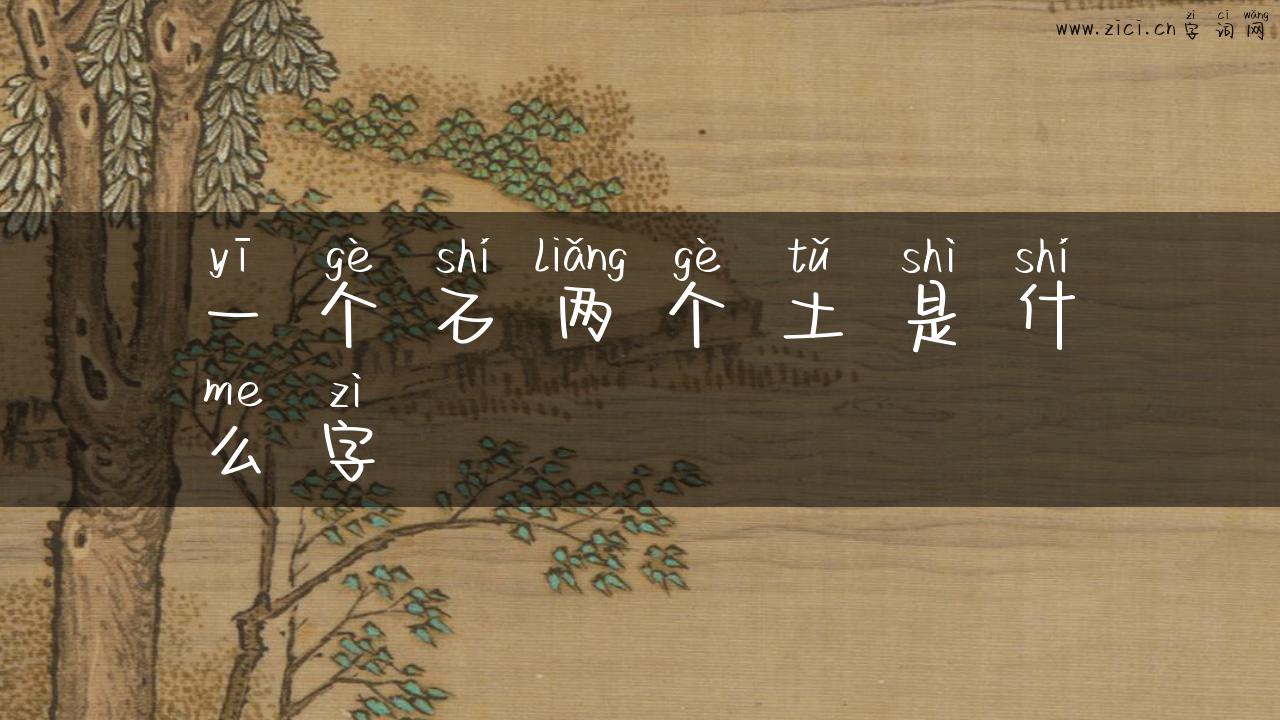 zì cí wǎng
www.zici.cn 字词网
yī gè shí liǎng gè tǔ shì shí
一个石两个土是什
me zì
么字